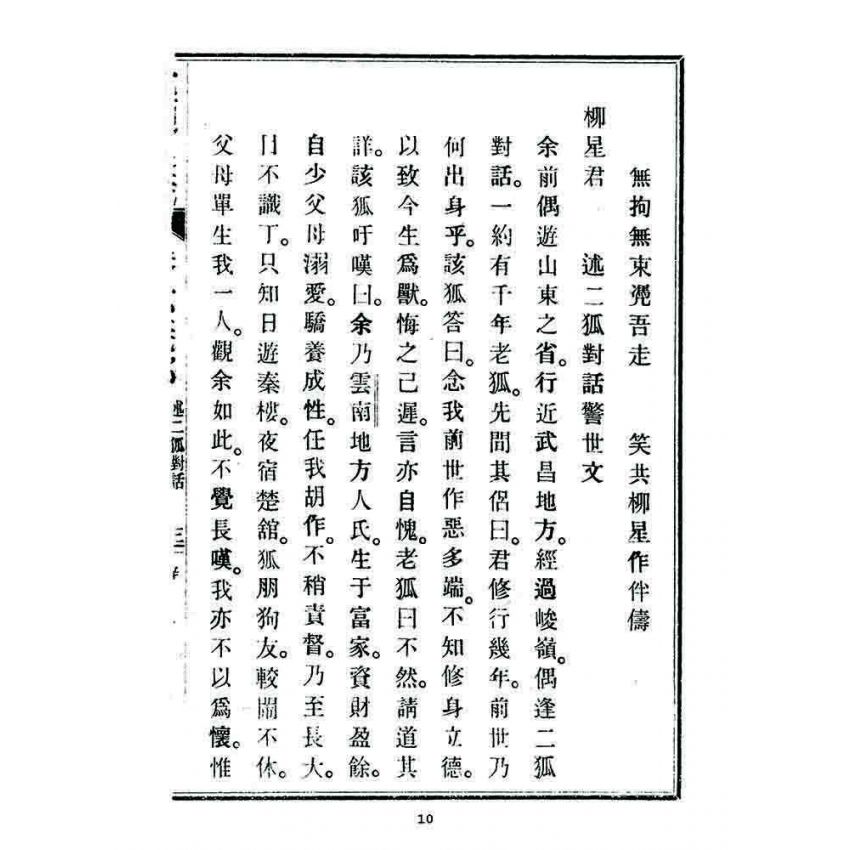 無拘無束凴吾走　笑共柳星作伴儔
柳星君　述二狐對話警世文
余前偶遊山東之省。行近武昌地方。經過峻嶺。偶逢二狐
對話。一約有千年老狐。先問其侶曰。君修行幾年。前世乃
何出身乎。該狐答曰。念我前世作惡多端。不知修身立德。
以致今生爲獸。悔之已遲。言亦自愧。老狐曰不然。請道其
詳。該狐吁嘆曰。余乃雲南地方人氏。生于富家。資財盈餘。
自少父母溺愛。驕養成性。任我胡作。不稍責督。乃至長大。
目不識丁。只知日遊秦樓。夜宿楚舘。狐朋狗友。較鬧不休。
父母單生我一人。觀余如此。不覺長嘆。我亦不以爲懷。惟
述二狐對話
10